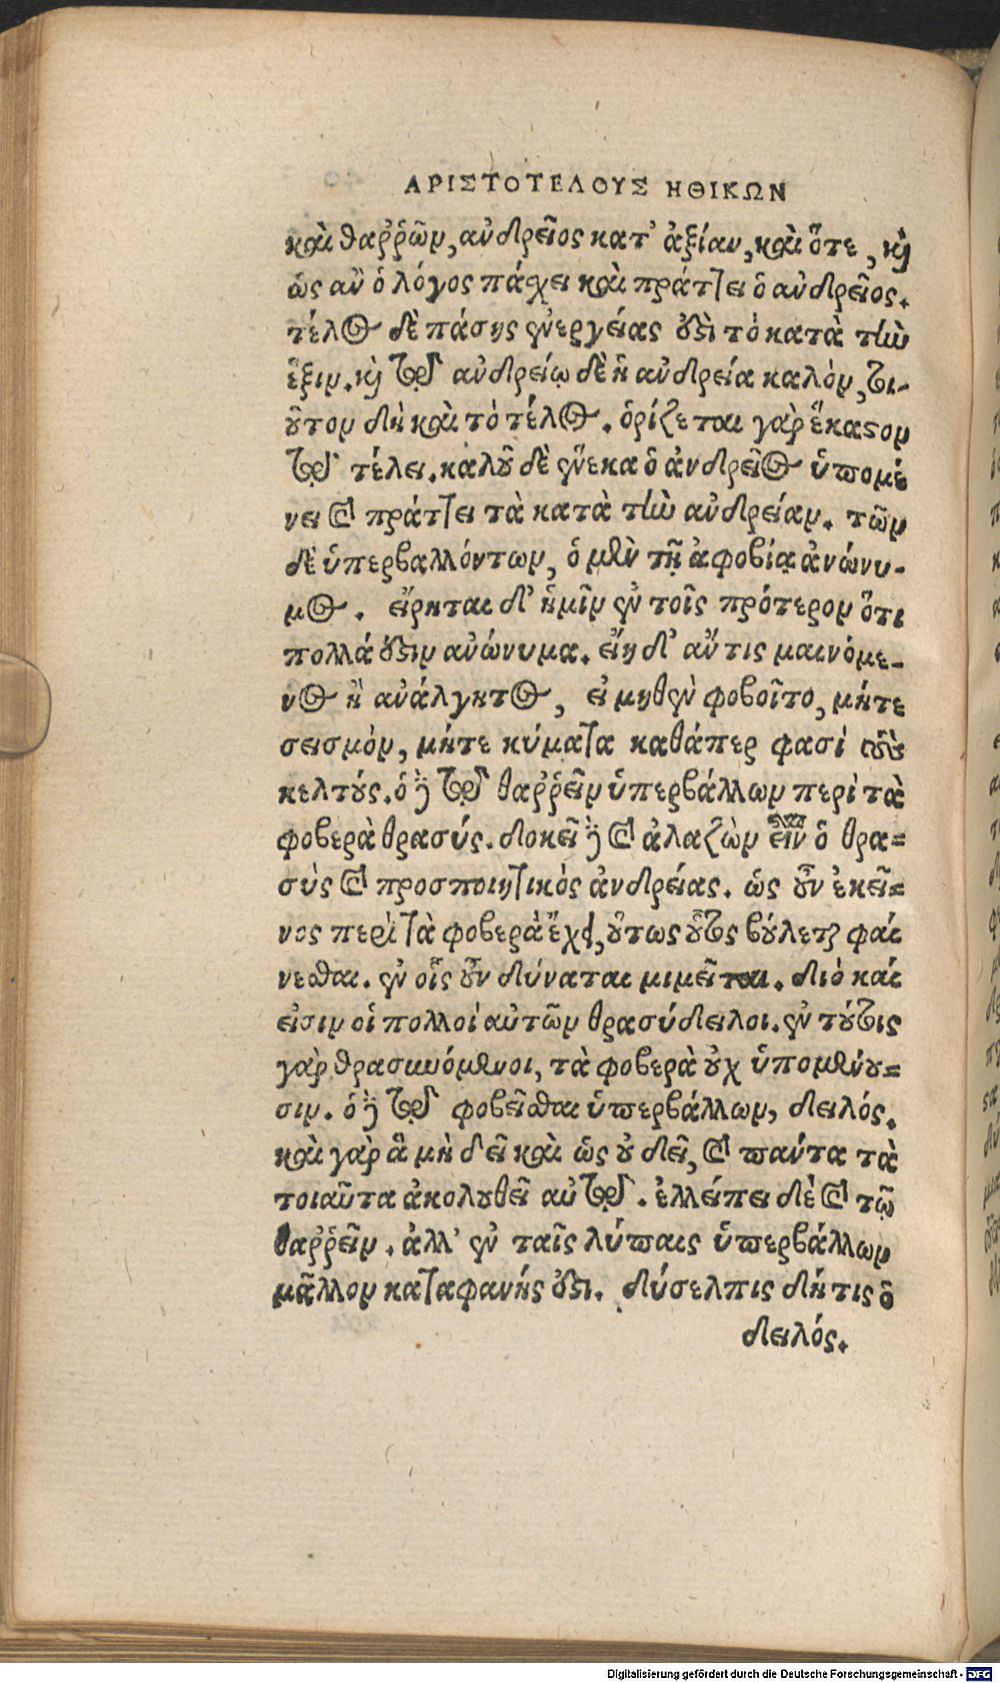 ΑΡΙΣΤΟΤΕΛΟΥΣ ΗΘΙΚΩΝ
καὶ θαῤῥῶν, ἀνδρεῖος κατ' ἀξίαν, καὶ ὅτε, κὶ
ὡς ἂν ὁ λόγος πάχει καὶ πράττει ὁ ἀνδρεῖος.
τέλος δὲ πάσης ἐνεργείας ἐστὶ τὸ κατὰ τὴν
ἕξιν. κὶ τῷ ἀνδρείῳ δὲ ἡ ἀνδρεία καλὸν, τοι-
οῦτον δὴ καὶ τὸ τέλος. ὁρίζεται γὰρ ἕκαστον
τῷ τέλει. καλοῦ δὲ ἕνεκα ὁ ἀνδρεῖος ὑπομέ
νει καὶ πράττει τὰ κατὰ τὴν ἀνδρείαν. τῶν
δὲ ὑπερβαλλόντων, ὁ μὲν τῇ ἀφοβίᾳ ἀνώνυ-
μος. εἴρηται δ' ἡμῖν ἐν τοῖς πρότερον ὅτι
πολλά ἐστιν ἀνώνυμα. εἴη δ' ἄν τις μαινόμε-
νος ἢ ἀνάλγητος, εἰ μηθὲν φοβοῖτο, μήτε
σεισμὸν, μήτε κύματα καθάπερ φασὶ τοὺς
κελτούς. ὁ δὲ τῷ θαῤῥεῖν ὑπερβάλλων περὶ τὰ
φοβερὰ θρασύς. δοκεῖ δὲ καὶ ἀλαζὼν εἶναι ὁ θρα=
σὺς καὶ προσποιητικὸς ἀνδρείας. ὡς οὖν ἐκεῖ=
νος περὶ τὰ φοβερὰ ἔχει, οὕτως οὗτος βούλεται φαί
νεσθαι. ἐν οἷς οὖν δύναται μιμεῖται. διὸ καί
εἰσιν οἱ πολλοὶ αὐτῶν θρασύδειλοι. ἐν τούτοις
γὰρ θρασυνόμενοι, τὰ φοβερὰ οὐχ ὑπομένου=
σιν. ὁ δὲ τῷ φοβεῖσθαι ὑπερβάλλων, δειλός.
καὶ γὰρ ἃ μὴ δεῖ καὶ ὡς οὐ δεῖ, καὶ πάντα τὰ
τοιαῦτα ἀκολουθεῖ αὐτῷ. ἐλλείπει δὲ καὶ τῷ
θαῤῥεῖν. ἀλλ' ἐν ταῖς λύπαις ὑπερβάλλων
μᾶλλον καταφανής ἐστι. δύσελπις δή τις ὁ
δειλός.
Digitalisierung gefördert durch die Deutsche Forschungsgemeinschaft - DFG